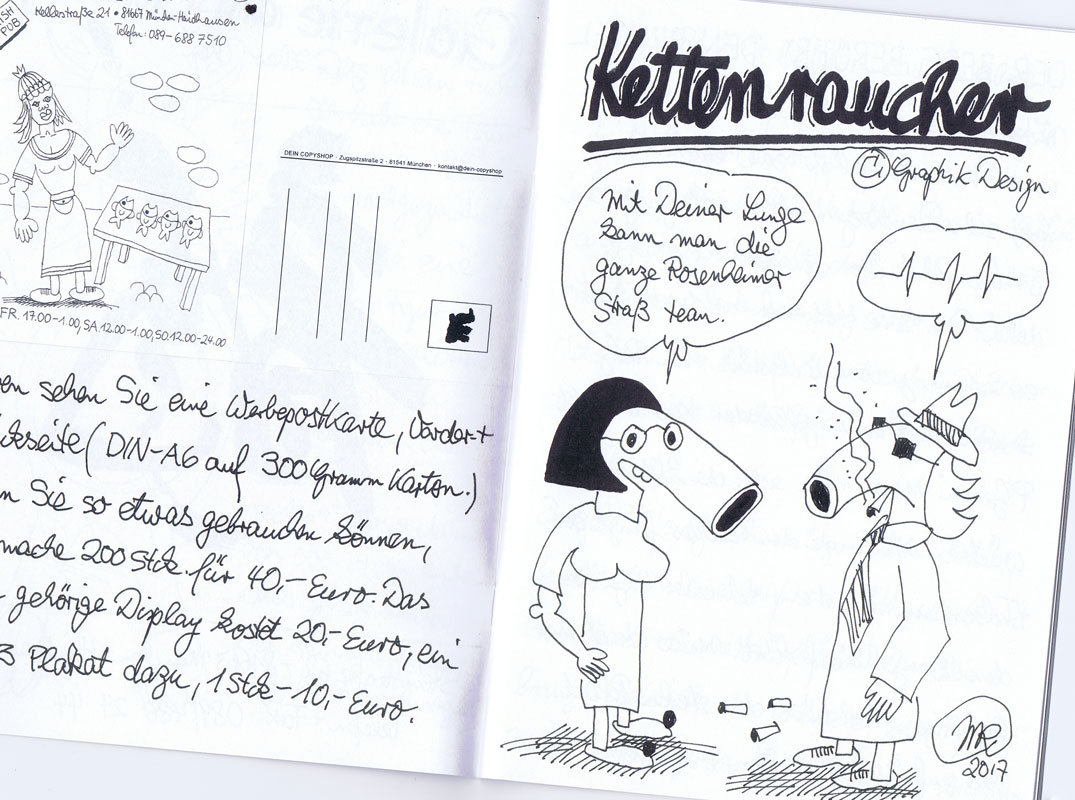 ISH
PUB
Kellerstraße 21 • 81667 München-Haidhausen
Telefon: 089-688 7510
FR. 17.00-1.00, SA. 12.00-1.00, SO. 12.00-24.00
DEIN COPYSHOP · Zugspitzstraße 2 · 81541 München · kontakt@dein-copyshop
en sehen Sie eine Werbepostkarte, Vorder-+
ckseite (DIN-A6 auf 300 Gramm Karton.)
n Sie so etwas gebrauchen können,
mache 200 Stck. für 40,- Euro. Das
gehörige Display kostet 20,- Euro, ein
3 Plakat dazu, 1 Stck - 10,- Euro.
Kettenraucher
Graphik Design
Mit Deiner Lunge
kann man die
ganze Rosenheimer
Straß tean.
MR
2017